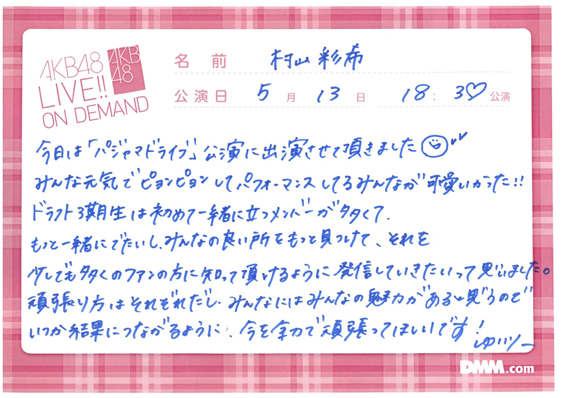 AKB48
LIVE!!
ON DEMAND
AKB
48
名前 村山彩希
公演日 5月13日 18:30公演
今日は「パジャマドライブ」公演に出演させて頂きました
みんな元気でピョンピョンしてパフォーマンスしてるみんなが可愛いかった!!
ドラフト3期生は初めて一緒に立つメンバーが多くて、
もっと一緒にでたいし、みんなの良い所をもっと見つけて、それを
少しでも多くのファンの方に知って頂けるように発信していきたいって思いました。
頑張り方はそれぞれだし、みんなにはみんなの魅力があると思うので
いつか結果につながるように、今を全力で頑張ってほしいです!
ゆいりー
DMM.com